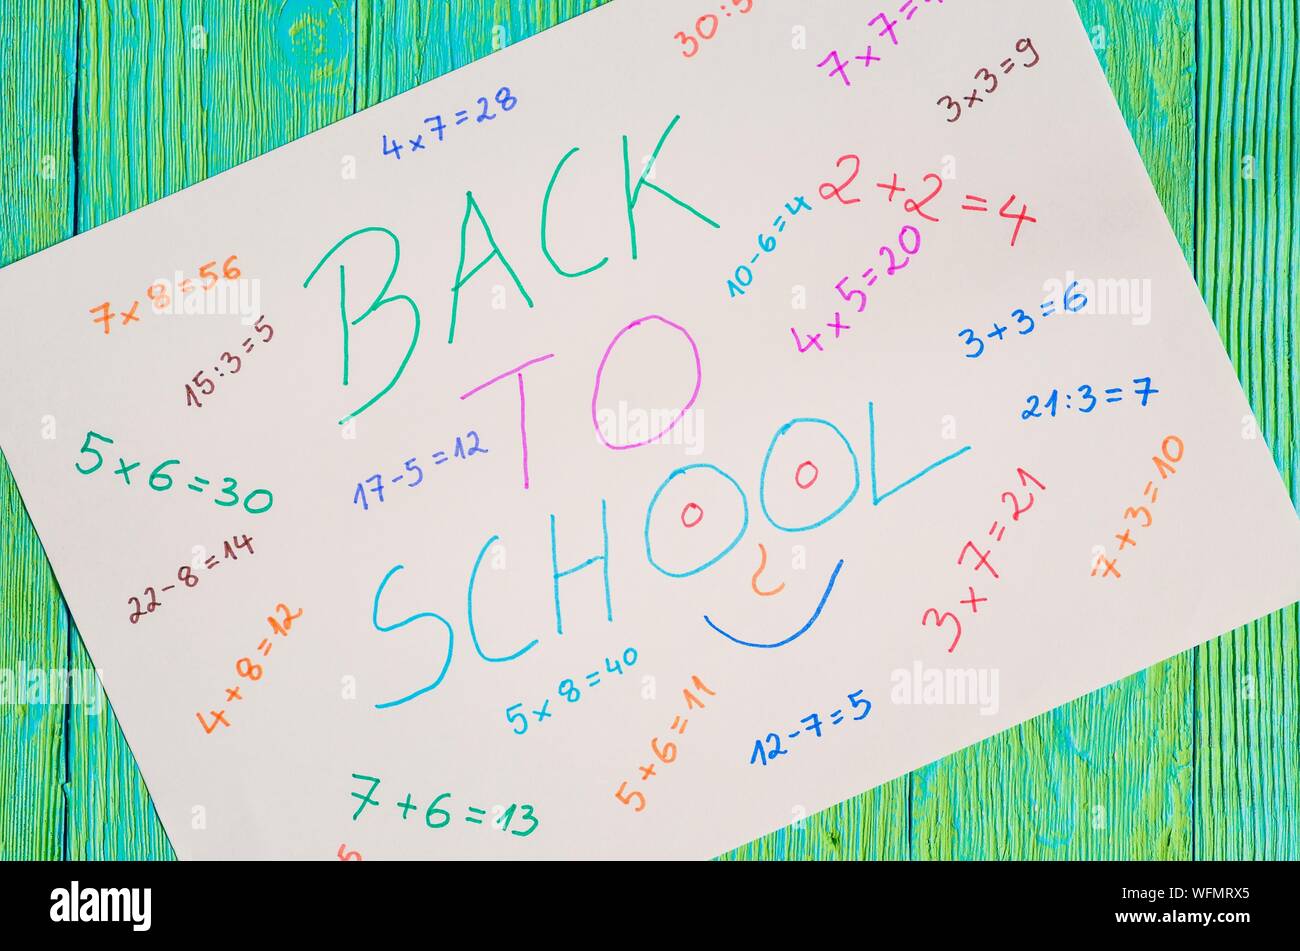 30:5
7×7=4
3×3=9
4×7=28
BACK
2+2=4
10-6=4
4×5=20
7×8=56
15:3=5
3+3=6
TO
21:3=7
17-5=12
5×6=30
SCHOOL
7+3=10
3×7=21
22-8=14
4+8=12
5×8=40
5+6=11
12-7=5
7+6=13
5
alamy
Image ID: WFMRX5
www.alamy.com